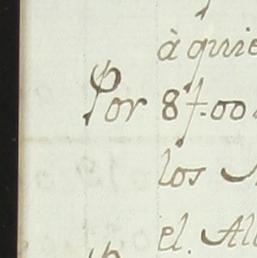 à quie
Por 87.00
los
el. Al